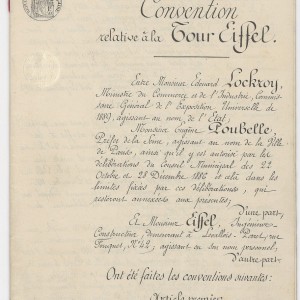 Convention
relative à la Tour Eiffel.
Entre Monsieur Edouard Lockroy,
Ministre du Commerce et de l'Industrie, Commis-
saire Général de l'Exposition Universelle de
1889, agissant au nom de l'Etat,
Monsieur Eugène Poubelle,
Préfet de la Seine, agissant au nom de la Ville
de Paris, ainsi qu'il y est autorisé par la
délibération du Conseil Municipal des 22
Octobre et 28 Décembre 1886 et cela dans les
limites fixées par ces délibérations, qui
resteront annexées aux présentes;
d'une part,
Et Monsieur Eiffel, Ingénieur
Constructeur, demeurant à Levallois-Perret, rue
Fouquet, N° 42, agissant en son nom personnel,
d'autre part,
Ont été faites les conventions suivantes:
Article premier